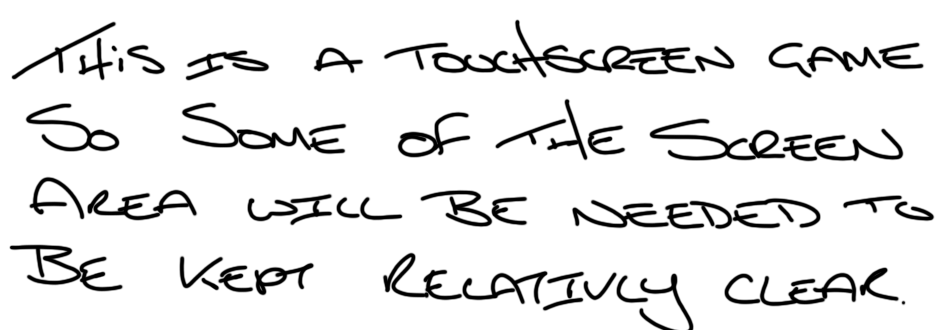 THIS IS A TOUCHSCREEN GAME
SO SOME OF THE SCREEN
AREA WILL BE NEEDED TO
BE KEPT RELATIVLY CLEAR.